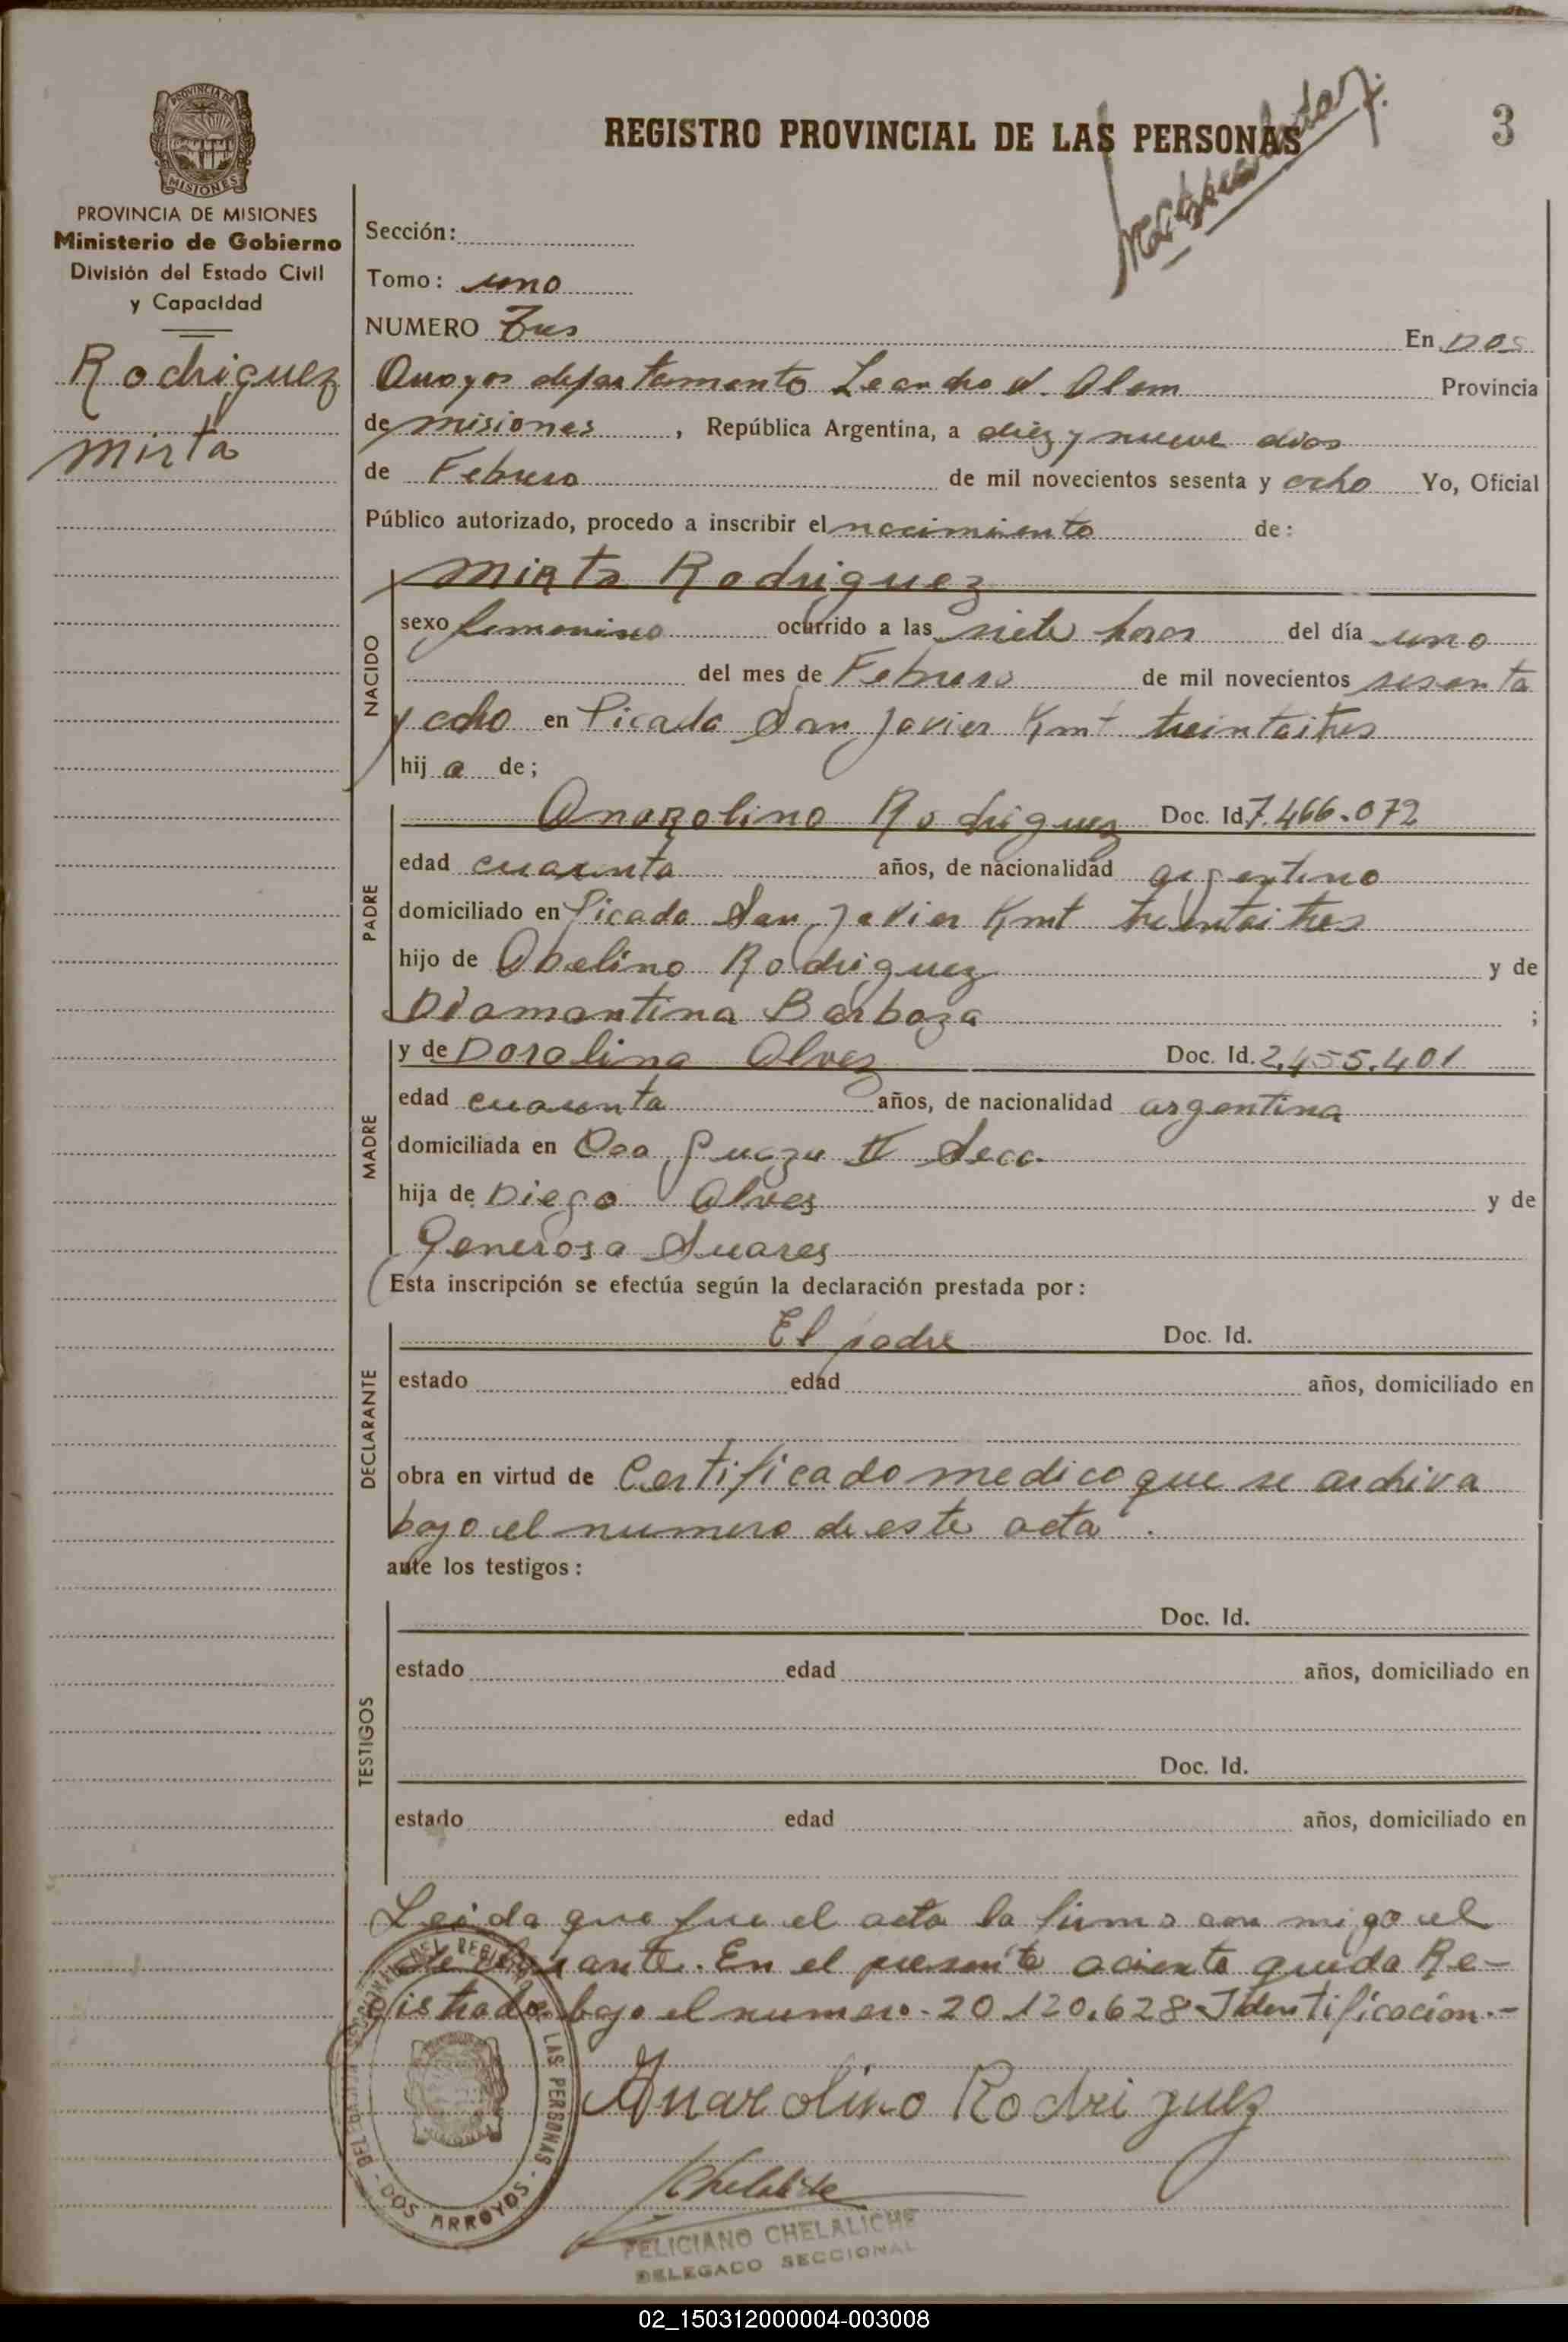 REGISTRO PROVINCIAL DE LAS PERSONAS
3
PROVINCIA DE
MISIONES
PROVINCIA DE MISIONES
Ministerio de Gobierno
División del Estado Civil
y Capacidad
Rodriguez
Mirta
Sección:
Tomo: uno
NUMERO Tres En Dos
Arroyos departamento Leandro N. Alem Provincia
de misiones, República Argentina, a diez y nueve dias
de Febrero de mil novecientos sesenta y ocho Yo, Oficial
Público autorizado, procedo a inscribir el nacimiento de:
NACIDO
Mirta Rodriguez
sexo femenino ocurrido a las siete horas del día uno
del mes de Febrero de mil novecientos sesenta
y ocho en Picada San Javier Kmt treintaitres
hij a de;
PADRE
Anarolino Rodriguez Doc. Id 7.466.072
edad cuarenta años, de nacionalidad argentino
domiciliado en Picada San Javier Kmt treintaitres
hijo de Abelino Rodriguez y de
Diamantina Barboza ;
MADRE
y de Doralina Alvez Doc. Id. 2.455.401
edad cuarenta años, de nacionalidad argentina
domiciliada en Seca
hija de Diego Alves y de
Generosa Suares
Esta inscripción se efectúa según la declaración prestada por:
DECLARANTE
El padre Doc. Id.
estado edad años, domiciliado en
obra en virtud de Certificado medico que se archiva
bajo el numero de este acta.
ante los testigos:
TESTIGOS
Doc. Id.
estado edad años, domiciliado en
Doc. Id.
estado edad años, domiciliado en
Leida que fue el acta la firma con migo el
declarante. En el presente aciento queda Re-
gistrado bajo el numero-20.120.628-Identificacion.-
Anarolino Rodriguez
Chelaliche
FELICIANO CHELALICHE
DELEGADO SECCIONAL
DEL REGISTRO LAS PERSONAS - DOS ARROYOS -
02_150312000004-003008